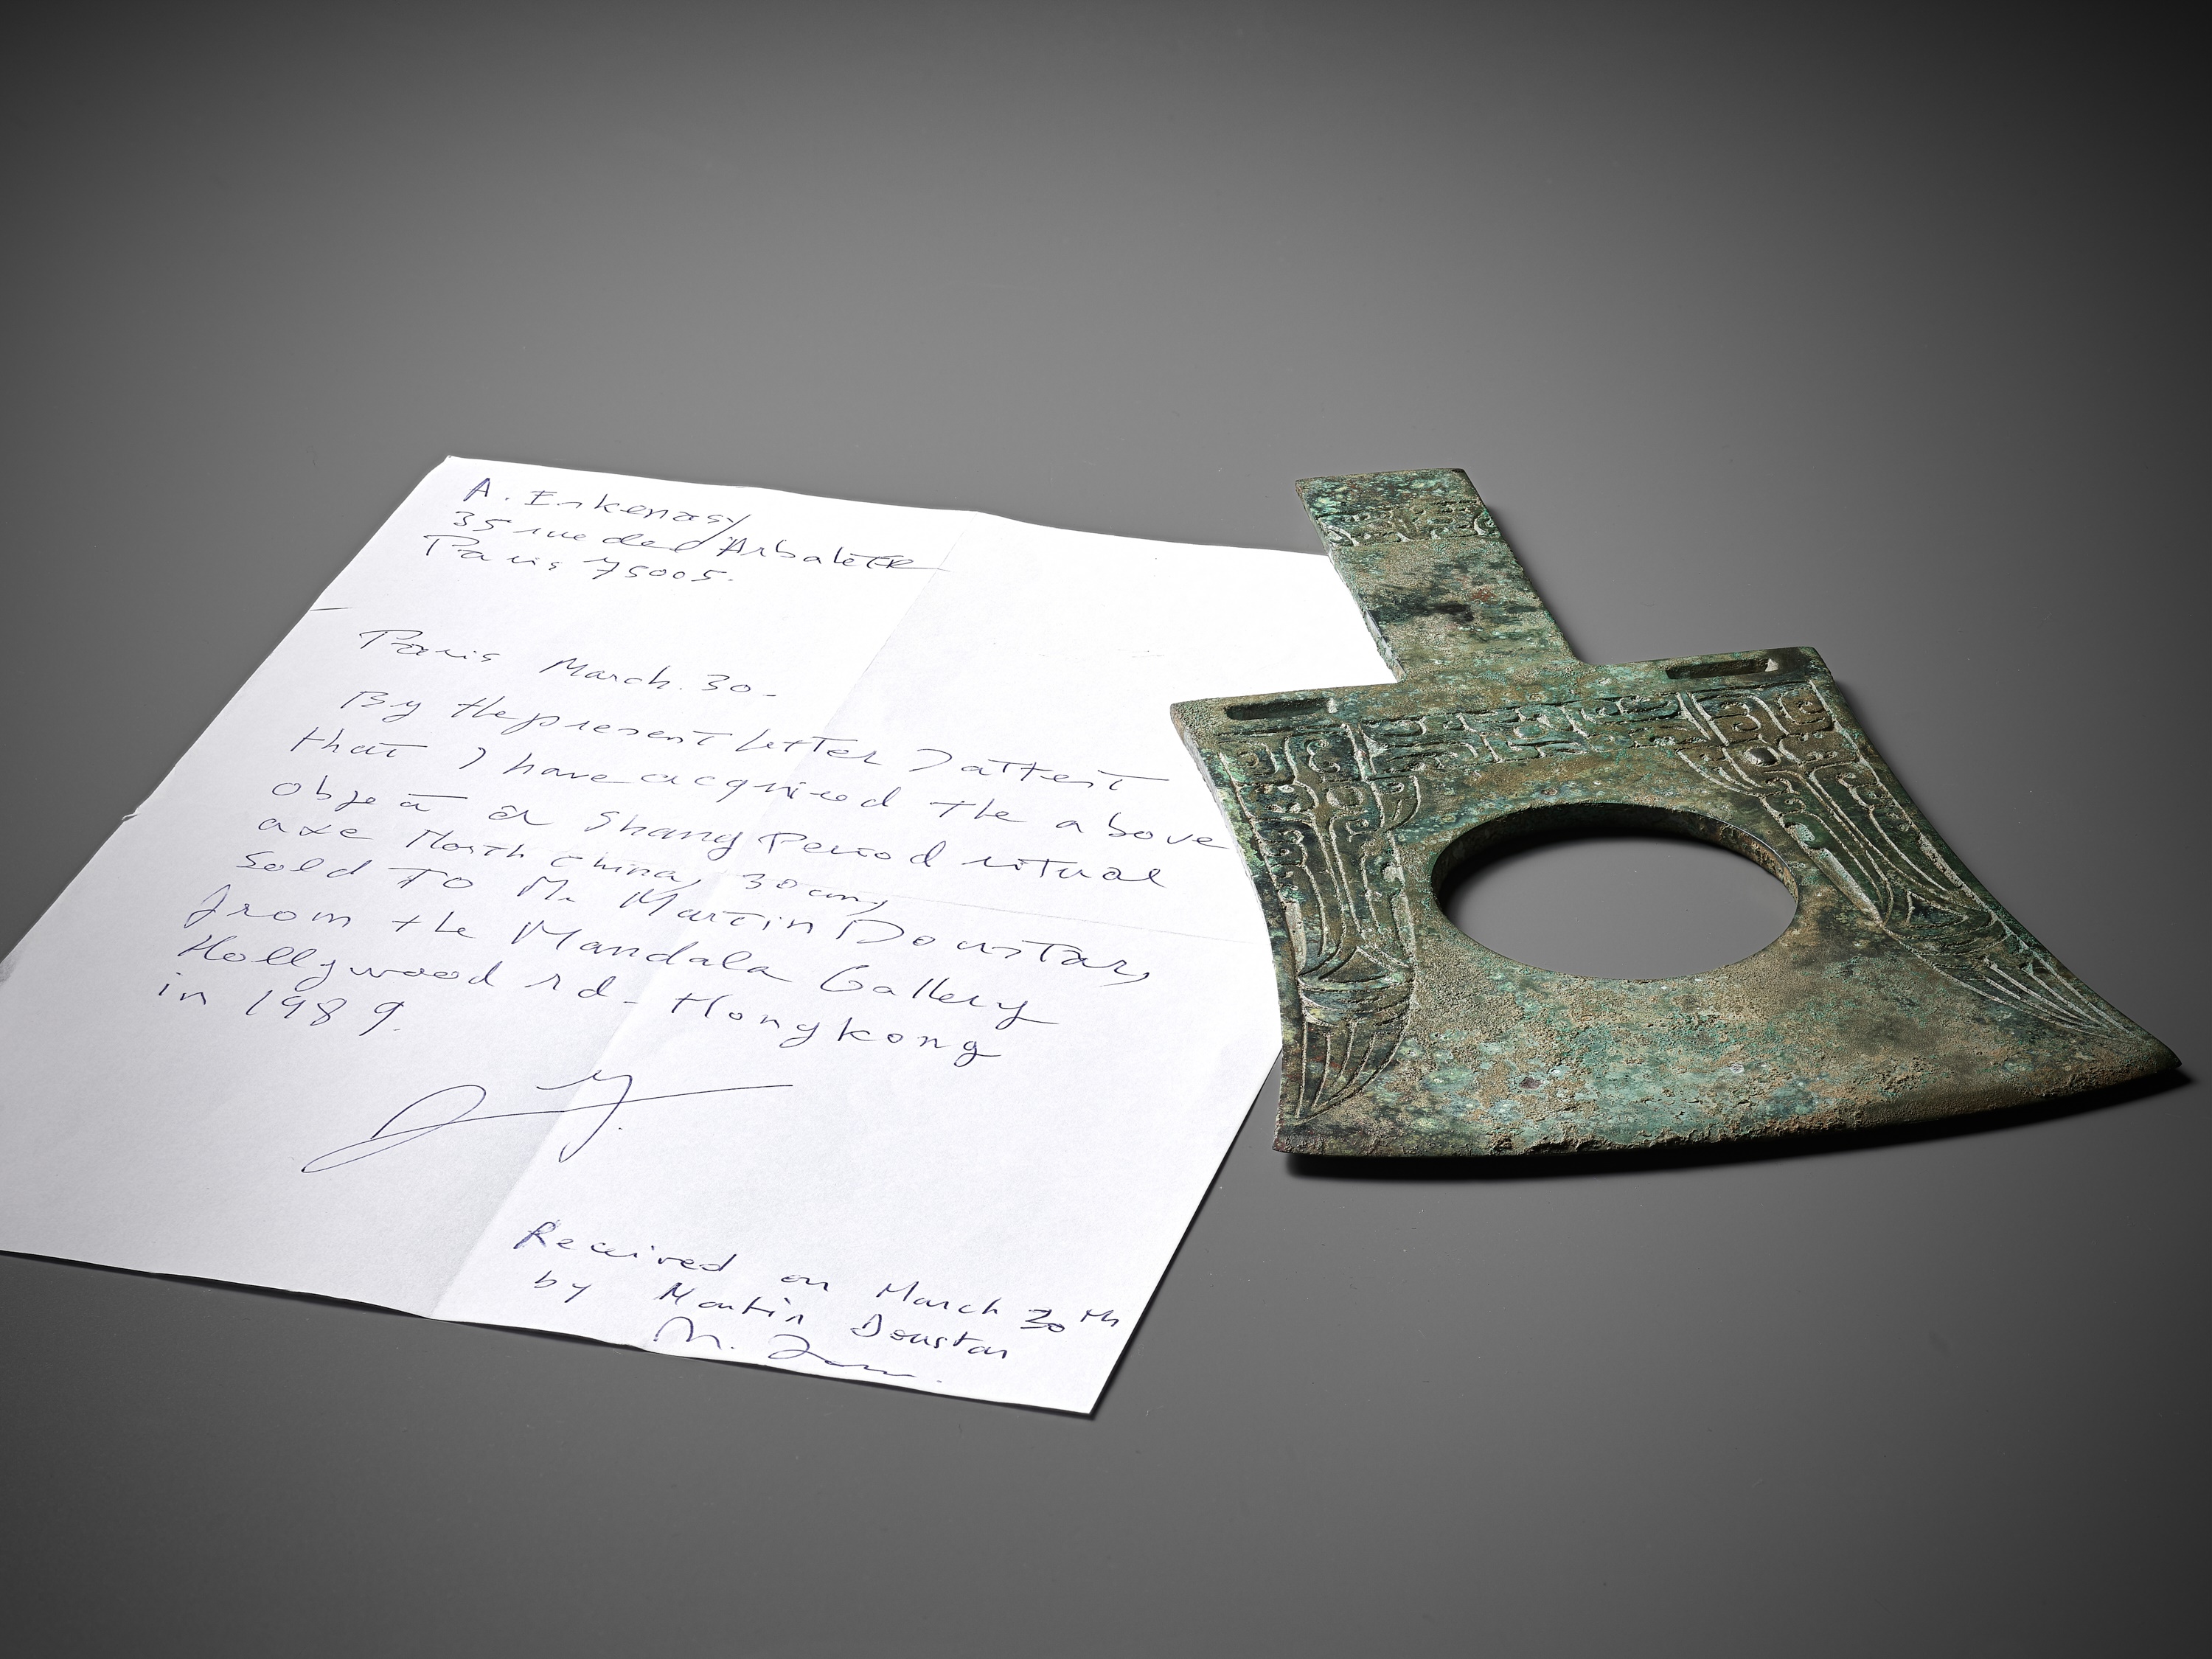 A. Erkenasy
35 rue de l Arbalète
Paris 75005.
Paris March. 30-
By the present letter I attest
that I have acquired the above
object a Shang Period ritual
axe North China, 30 cm,
Sold to Mr Martin Doustar,
from the Mandala Gallery
Hollywood rd - Hongkong
in 1989.
Received on March 30th
by Martin Doustar